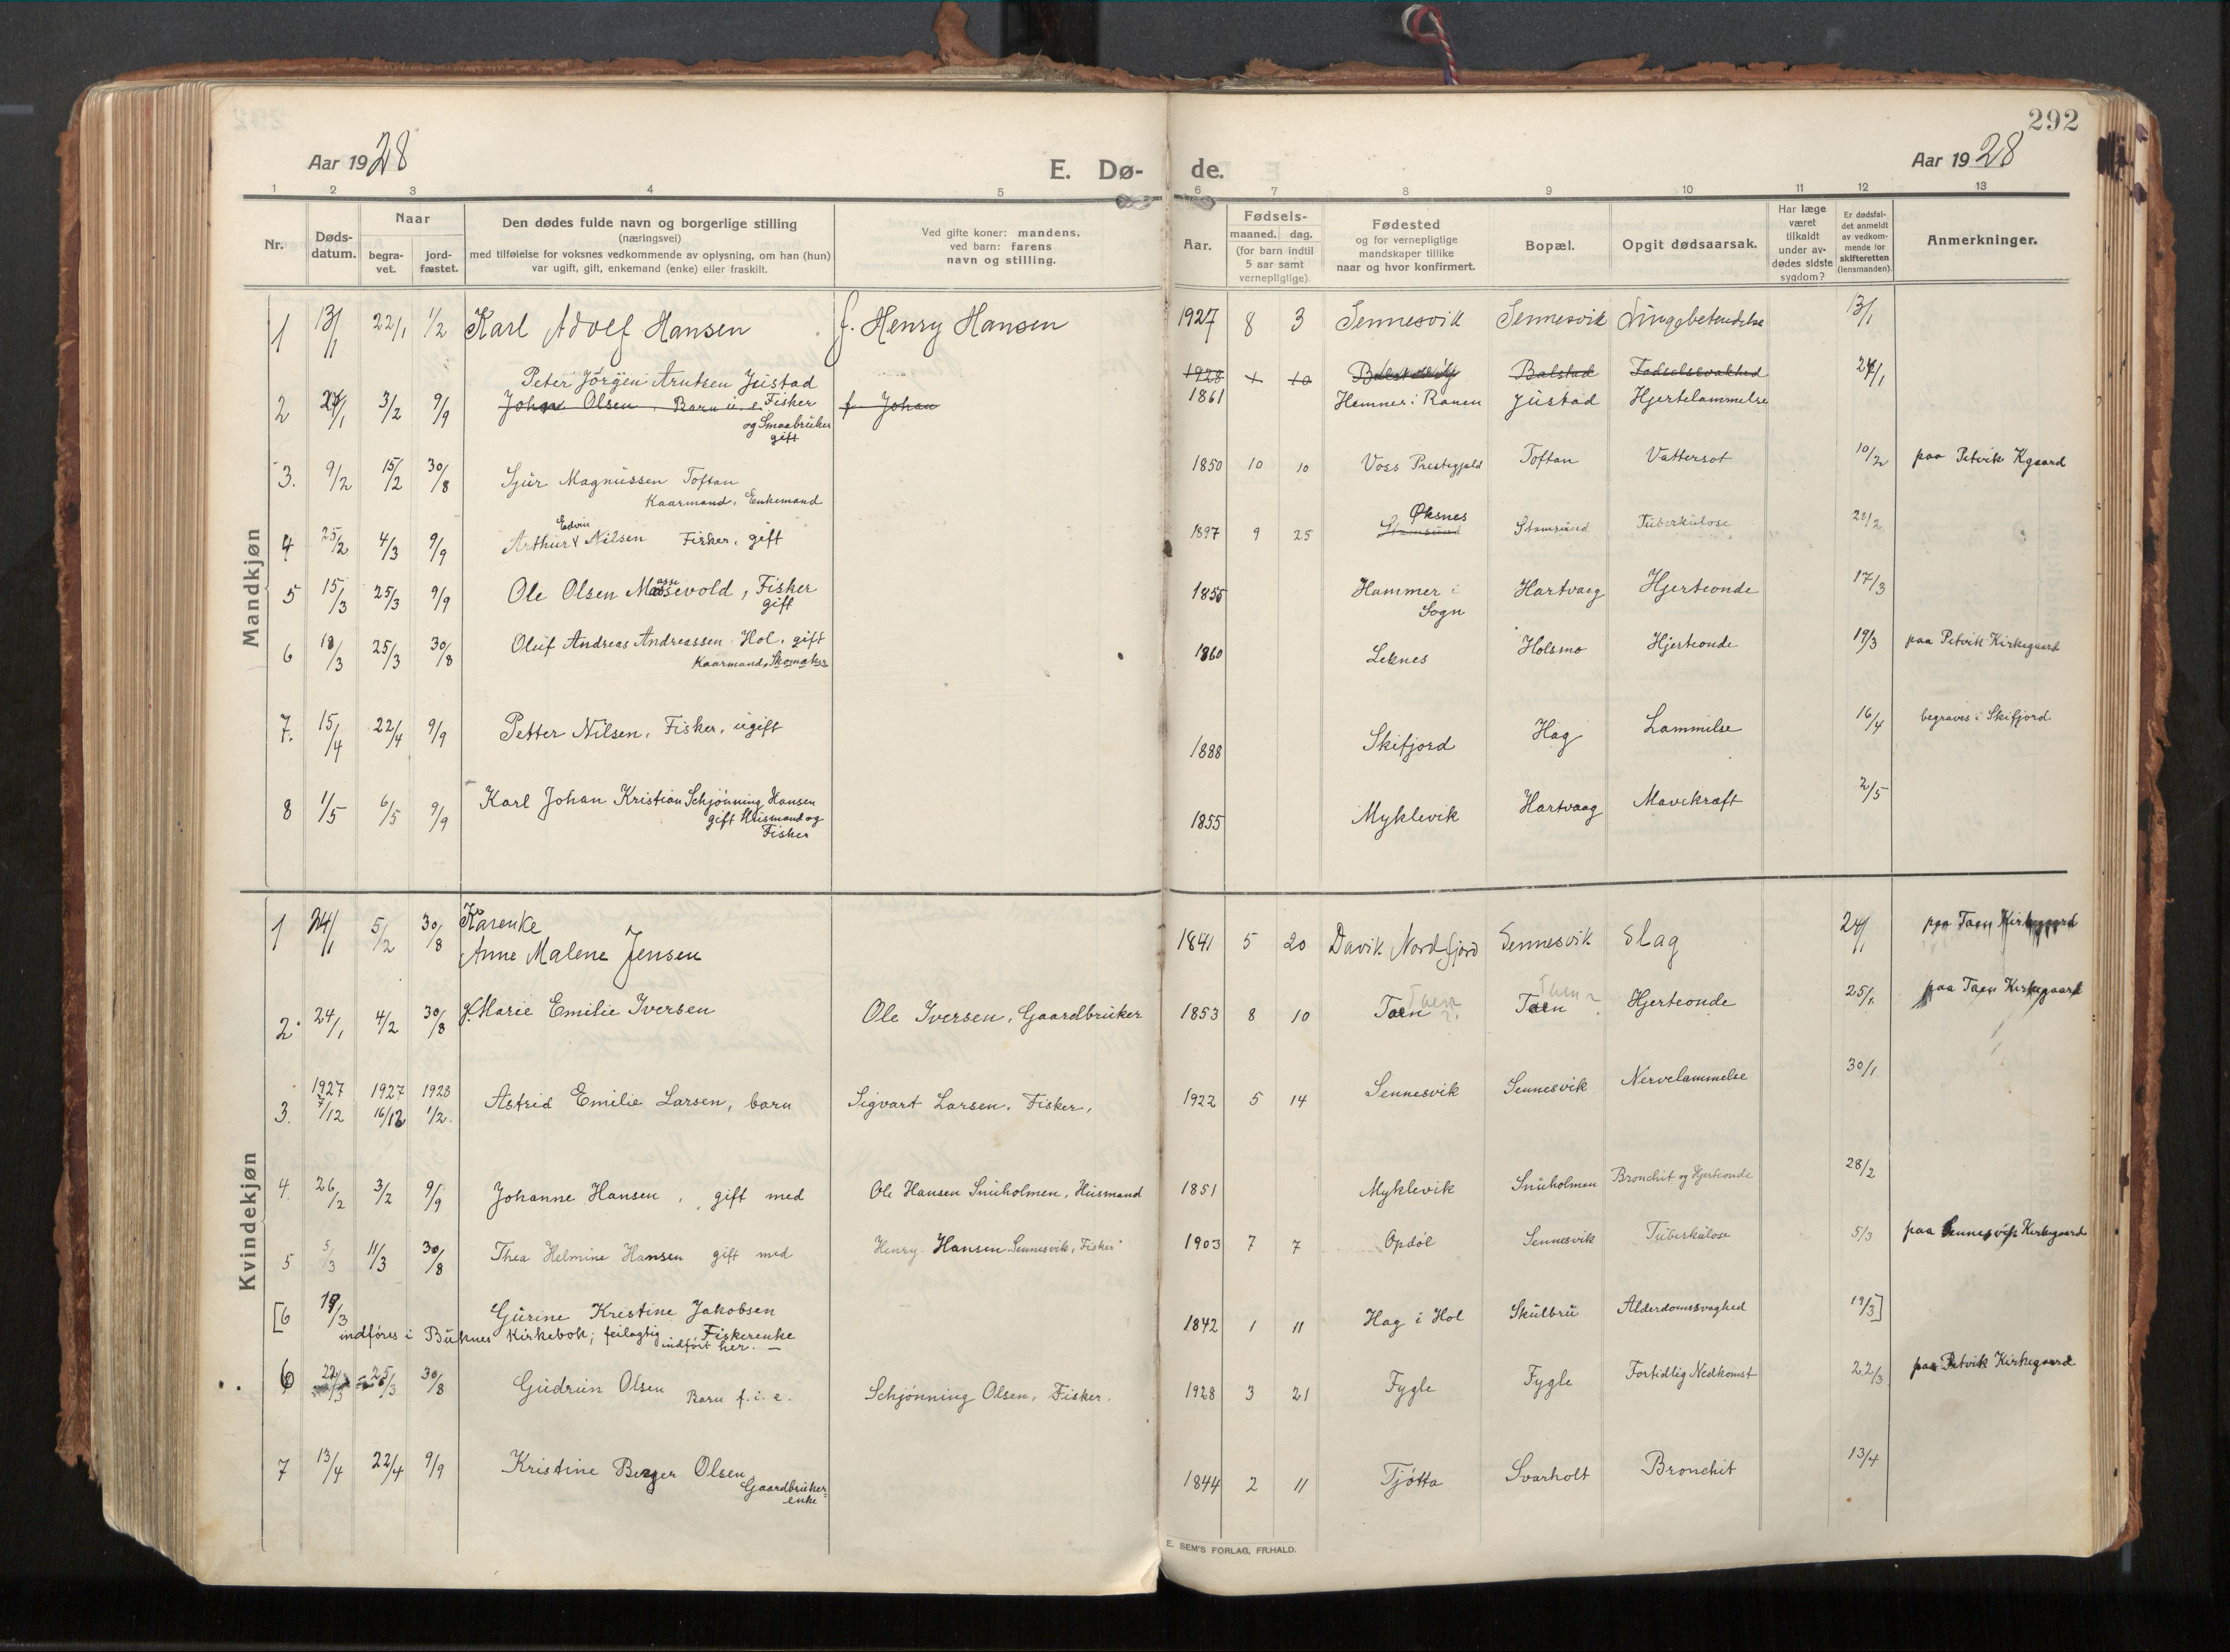 292
Aar 1928
E. Dø-
de.
Aar 1928
1 2 3 4 5 6 7 8 9 10 11 12 13
Nr.
Døds-
datum.
Naar
begra-
vet.
jord-
fæstet.
Den dødes fulde navn og borgerlige stilling
(næringsvei)
med tilføielse for voksnes vedkommende av oplysning, om han (hun)
var ugift, gift, enkemand (enke) eller fraskilt.
Ved gifte koner: mandens,
ved barn: farens
navn og stilling.
Aar.
Fødsels-
maaned. dag.
(for barn indtil
5 aar samt
vernepligtige)
Fødested
og for vernepligtige
mandskaper tillike
naar og hvor konfirmert.
Bopæl.
Opgit dødsaarsak.
Har læge
været
tilkaldt
under av-
dødes sidste
sygdom?
Er dødsfal-
det anmeldt
av vedkom-
mende for
skifteretten
(lensmanden).
Anmerkninger.
Mandkjøn
1 13/1 22/1 1/2 Karl Adolf Hansen f. Henry Hansen 1927 8 3 Sennesvik Sennesvik Lungebetendelse 13/1
Peter Jörgen Arntsen Justad 1928 1 10 Balstad Fødselssvakhed 27/1
2 27/1 3/2 9/9 Johan Olsen, Barn u. e. Fisker f. Johan 1861 Hemnes i Ranen Justad Hjertelammelse
og Smaabruker
gift
3. 9/2 15/2 30/8 Sjur Magnussen Toftan 1850 10 10 Voss Prestegjeld Toftan Vattersot 10/2 paa Petvik Kgaard
Kaarmand, Enkemand
Edvin Øksnes
4 25/2 4/3 9/9 Arthur Nilsen Fisker, gift 1897 9 25 Stamsund Stamsund Tuberkulose 28/2
5 15/3 25/3 9/9 Ole Olsen Massevold, Fisker 1855 Hammer i Hartvaag Hjerteonde 17/3
gift Sogn
6 18/3 25/3 30/8 Oluf Andreas Andreassen Hol, gift 1860 Leknes Holsmo Hjerteonde 19/3 paa Petvik Kirkegaard
Kaarmand, Skomaker
7. 15/4 22/4 9/9 Petter Nilsen, Fisker, ugift 1888 Skifjord Hag Lammelse 16/4 begraves i Skifjord
8 1/5 6/5 9/9 Karl Johan Kristian Schjönning Hansen 1855 Myklevik Hartvaag Mavekræft 2/5
gift Husmand og
Fisker
Kvindekjøn
1 24/1 5/2 30/8 Kårenke
Anne Malene Jensen 1841 5 20 Davik Nordfjord Sennesvik Slag 24/1 paa Taen Kirkegaard
2. 24/1 4/2 30/8 g. Marie Emilie Iversen Ole Iversen, Gaardbruker 1853 8 10 Taen Taen Hjerteonde 25/1 paa Taen Kirkegaard
1927 1927 1928
3. 7/12 16/12 1/2. Astrid Emilie Larsen, barn Sigvart Larsen, Fisker, 1922 5 14 Sennesvik Sennesvik Nervelammelse 30/1
4. 26/2 3/2 9/9 Johanne Hansen, gift med Ole Hansen Snuholmen, Husmand 1851 Myklevik Snuholmen Bronchit og Hjerteonde 28/2
5 5/3 11/3 30/8 Thea Helmine Hansen gift med Henry Hansen Sennesvik, Fisker 1903 7 7 Opdöl Sennesvik Tuberkulose 5/3 paa Sennesvik Kirkegaard
[6 19/3 Gurine Kristine Jakobsen 1842 1 11 Hag i Hol Skulbru Alderdomssvaghed 19/3]
indföres i Buknes Kirkebok; feilagtig indfört her. — Fiskerenke
6 22/3 25/3 30/8 Gudrun Olsen Barn f. i. e. Schjönning Olsen, Fisker. 1928 3 21 Fygle Fygle Fortidlig Nedkomst 22/3 paa Petvik Kirkegaard
7 13/4 22/4 9/9 Kristine Berger Olsen, 1844 2 11 Tjötta Svarholt Bronchit 13/4
Gaardbruker-
enke
E. SEM'S FORLAG, FR.HALD.